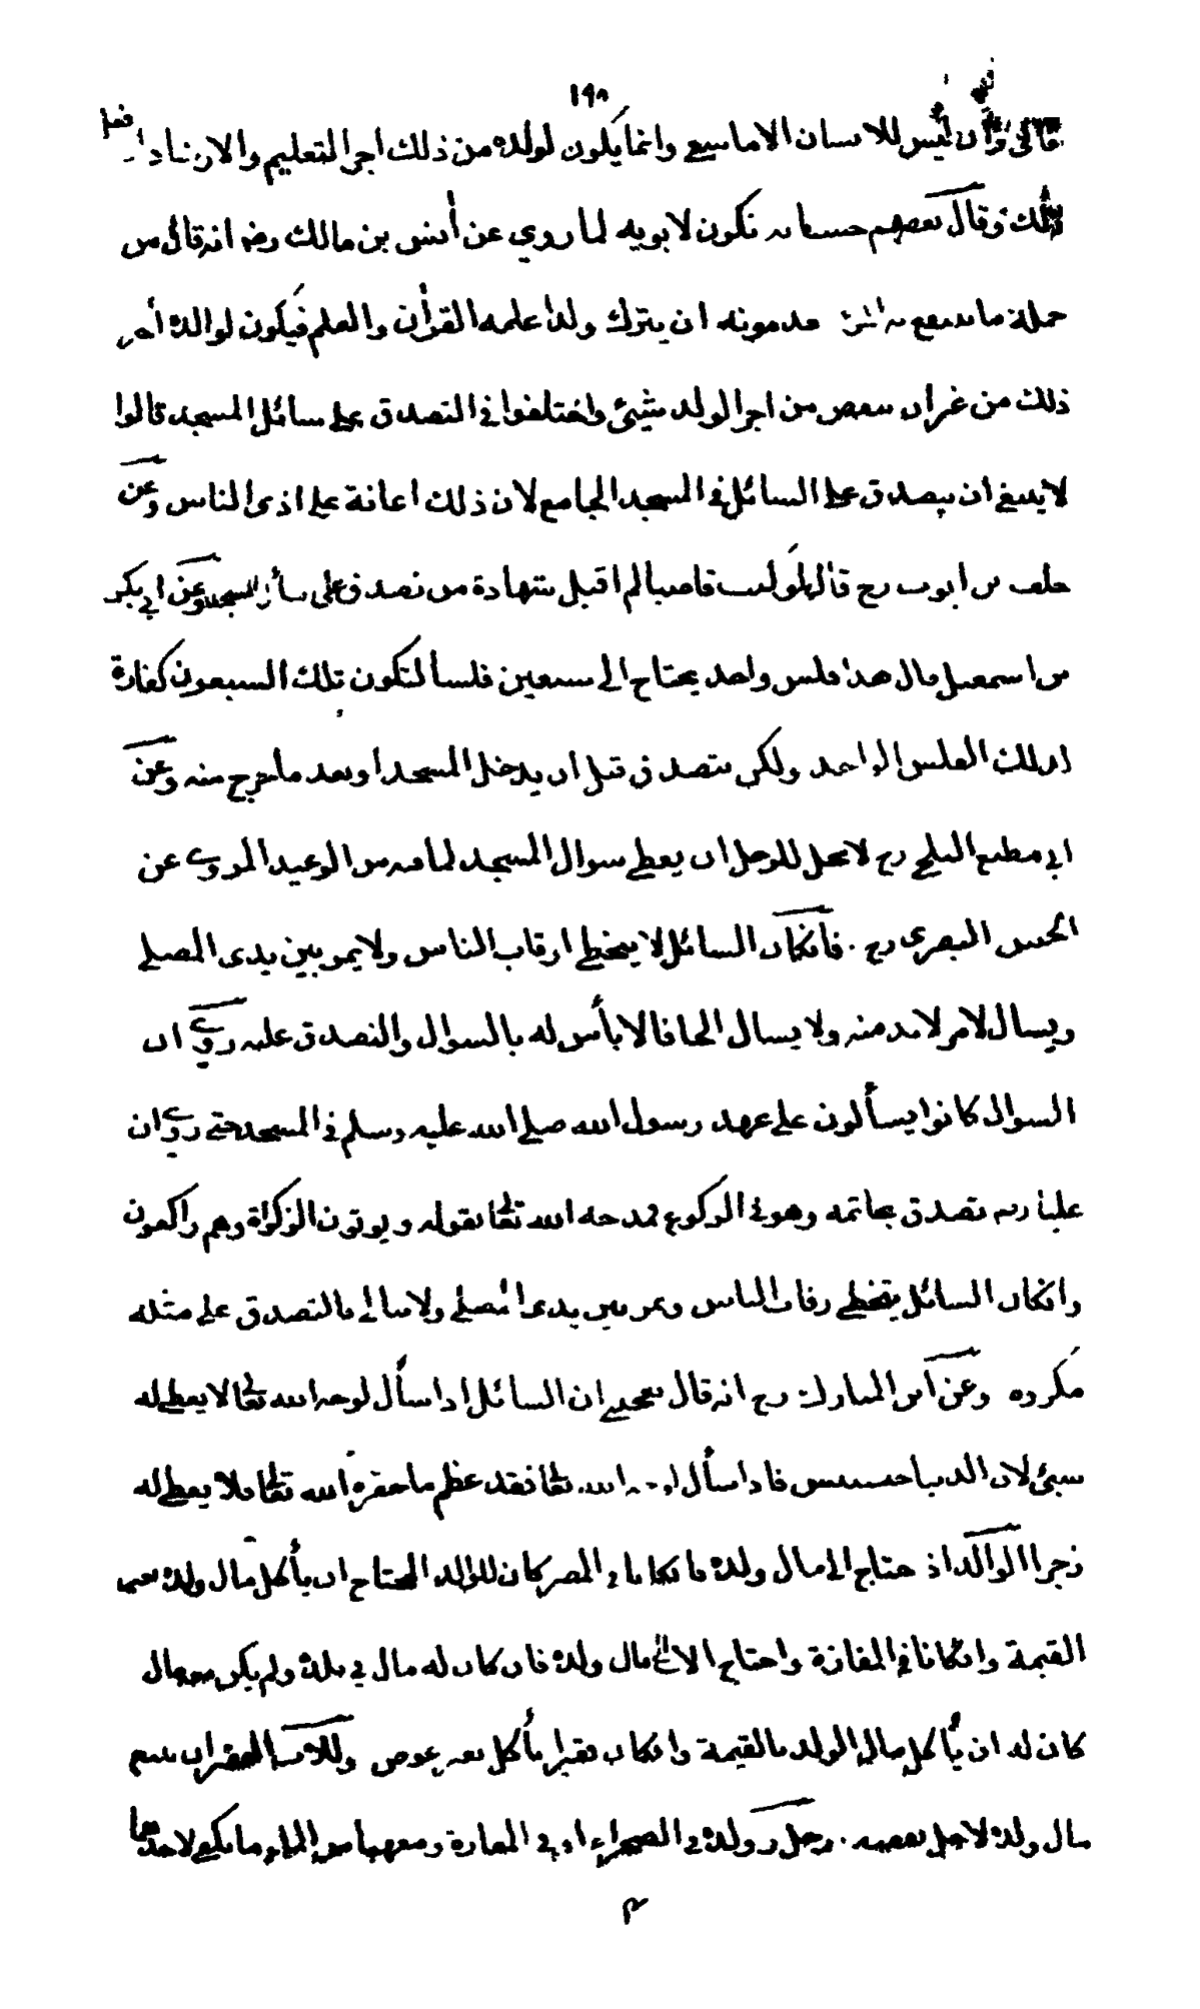 ١٩٨
تعالى وأن ليس للانسان الا ما سعى وانما يكون لولده من ذلك اجر التعليم والارشاد ا فعل
ذلك وقال بعضهم حسناته تكون لابويه لما روي عن أنس بن مالك رضه انه قال من
جملة ما ينتفع به موته ان يترك ولدا علمه القرأن والعلم فيكون لوالده أجر
ذلك من غير ان ينقص من اجر الولد شيئ واختلفوا في التصدق على سائل المسجد قالوا
لا ينبغي ان يتصدق على السائل في المسجد الجامع لان ذلك اعانة على اذى الناس وعن
خلف بن ايوب رح قال لو كنت قاضيا لم اقبل شهادة من تصدق على سائل المسجد وعن ابي بكر
بن اسمعيل قال هذا فلس واحد يحتاج الى سبعين فلسا لتكون تلك السبعون كفارة
لذلك الفلس الواحد ولكن يتصدق قبل ان يدخل المسجد او بعد ما خرج منه وعن
ابي مطيع البلخي رح لا يحل للرجل ان يعطي سوال المسجد لما فيه من الوعيد المروي عن
الحسن البصري رح . فانكان السائل لا يتخطى ارقاب الناس ولا يمر بين يدى المصلي
ويسال لامر لابد منه ولا يسال الحافا لا بأس له بالسوال والتصدق عليه روي ان
السوال كانوا يسألون على عهد رسول الله صلى الله عليه وسلم في المسجد حتى روي ان
عليا رضه تصدق بخاتمه وهو في الركوع فمدحه الله تعا بقوله ويوتون الزكوة وهم راكعون
وانكان السائل يتخطى رقاب الناس ويمر بين يدى المصلي ولا يبالي بالتصدق على مثله
مكروه وعن ابن المبارك رح انه قال يعجبني ان السائل اذا سأل لوجه الله تعا لا يعطى له
شيئ لان الدنيا خسيس فاذا سأل لوجه الله تعا فقد عظم ما حقره الله تعا فلا يعطى له
زجرا الوالد اذ حتاج الى مال ولده فانكانا في المصر كان للوالد المحتاج ان يأكل مال ولده بغير
القيمة وانكانا في المفازة واحتاج الاب الى مال ولده فان كان له مال في بلده ولم يكن معه مال
كان له ان يأكل مال الولد بالقيمة وانكان فقيرا يأكل بغير عوض وللاب الفقير ان يبيع
مال ولده لاجل نفقته . رجل وولده في الصحراء او في المفازة ومعهما من الماء ما يكفي لاحدهما